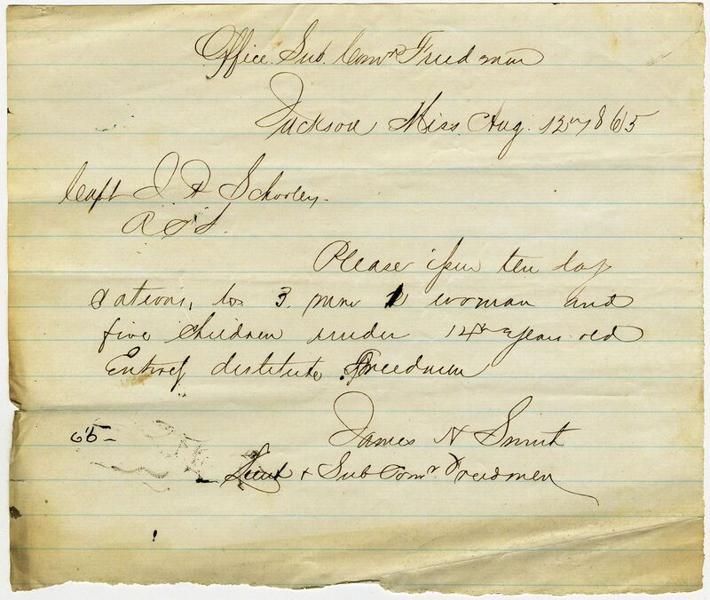 Office Sub. Comr Freedmen
Jackson Miss Aug. 12th 1865
Capt J. A Schooley.
A C S.
Please issue ten day
rations, to 3 men 1 woman and
five children under 14 years old
Entirely destitute Freedmen
James H Smith
65 -
Lieut + Sub Comr Freedmen